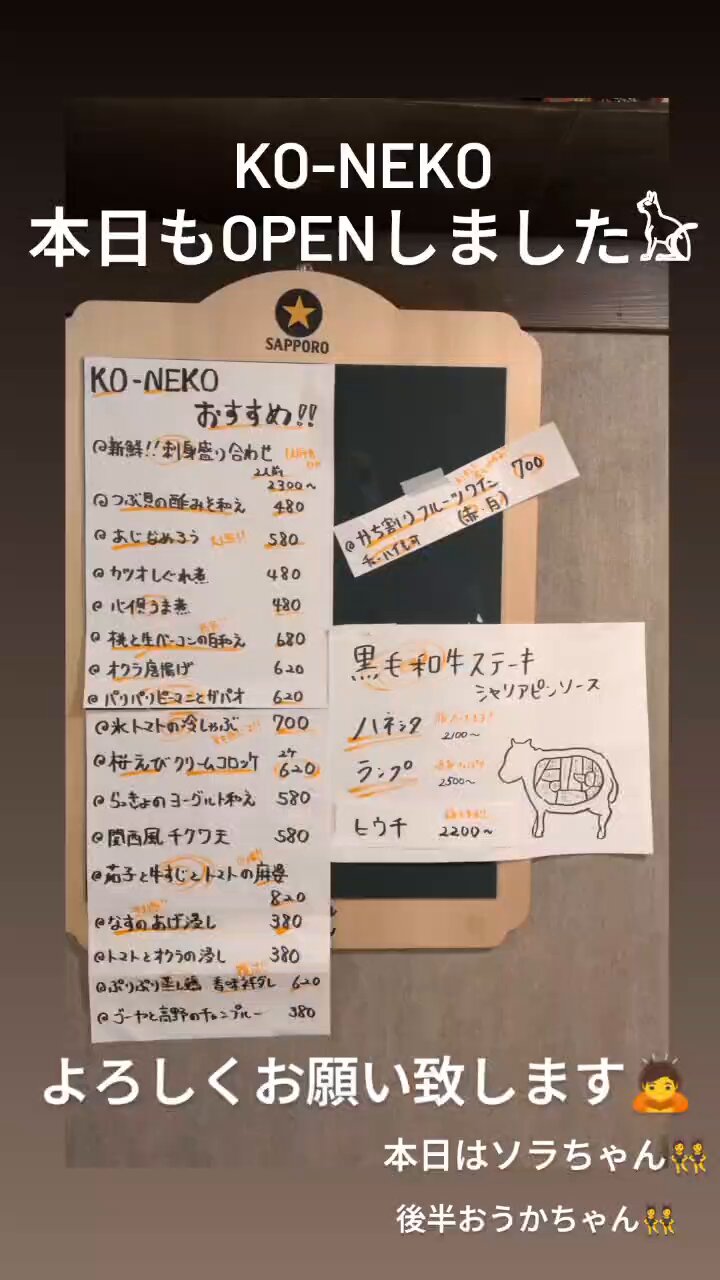 KO-NEKO
本日もOPENしました
SAPPORO
KO-NEKO
おすすめ!!
@新鮮!!刺身盛り合わせ
2人前
2300~
@つぶ貝の酢みそ和え 480
@あじなめろう 580
@カツオしぐれ煮 480
@うま煮 480
@桃と生ベーコンの白和え 680
@オクラ唐揚げ 620
@パリパリピーマンとガパオ 620
@氷トマトの冷しゃぶ 700
@桜えびクリームコロッケ 2ケ 620
@らっきょのヨーグルト和え 580
@関西風チクワ天 580
@茄子と牛すじとトマトの麻婆
820
@なすのあげ浸し 380
@トマトとオクラの浸し 380
@ぷりぷり蒸し鶏 香味ネギダレ 620
@ゴーヤと高野のチャンプルー 380
@かち割りフルーツワイン 700
(赤・白)
チューハイも可
黒毛和牛ステーキ
シャリアピンソース
ハネシタ 2100~
ランプ 2500~
ヒウチ 2200~
よろしくお願い致します
本日はソラちゃん
後半おうかちゃん